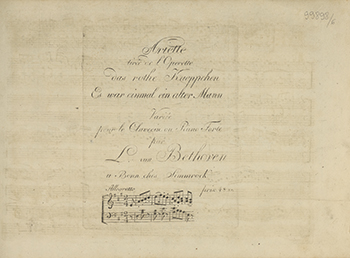 99898/6
Ariette
tiré de l'Operette
das rothe Kaeppchen
Es war einmal ein alter Mann
Variée
pour le Clavecin ou Piano Forte
par
L. van Bethoven
a Bonn chez Simmrock
Allegretto
prix